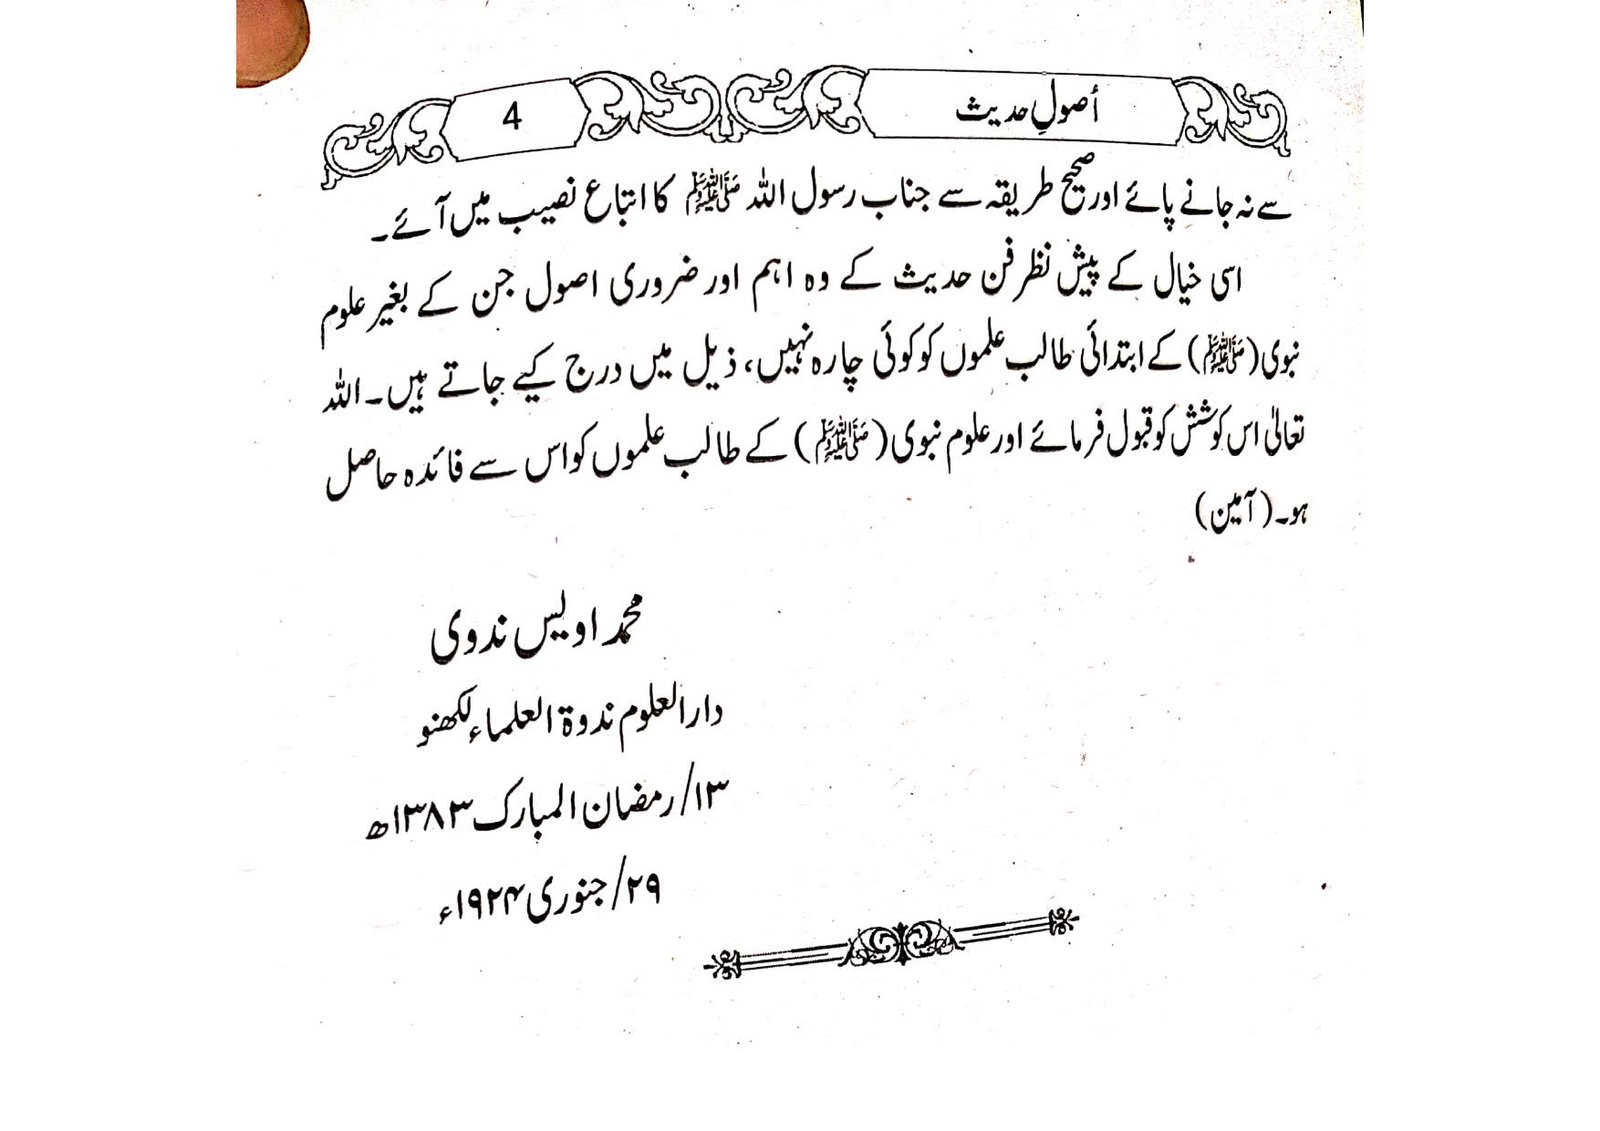 أصولِ حدیث
4
سے نہ جانے پائے اور صحیح طریقہ سے جناب رسول اللہ ﷺ کا اتباع نصیب میں آئے۔
اسی خیال کے پیش نظر فن حدیث کے وہ اہم اور ضروری اصول جن کے بغیر علوم
نبوی (ﷺ) کے ابتدائی طالب علموں کو کوئی چارہ نہیں، ذیل میں درج کیے جاتے ہیں۔ اللہ
تعالیٰ اس کوشش کو قبول فرمائے اور علوم نبوی (ﷺ) کے طالب علموں کو اس سے فائدہ حاصل
ہو۔ (آمین)
محمد اویس ندوی
دارالعلوم ندوۃ العلماء لکھنو
۱۳/ رمضان المبارک ۱۳۸۳ھ
۲۹/ جنوری ۱۹۲۴ء